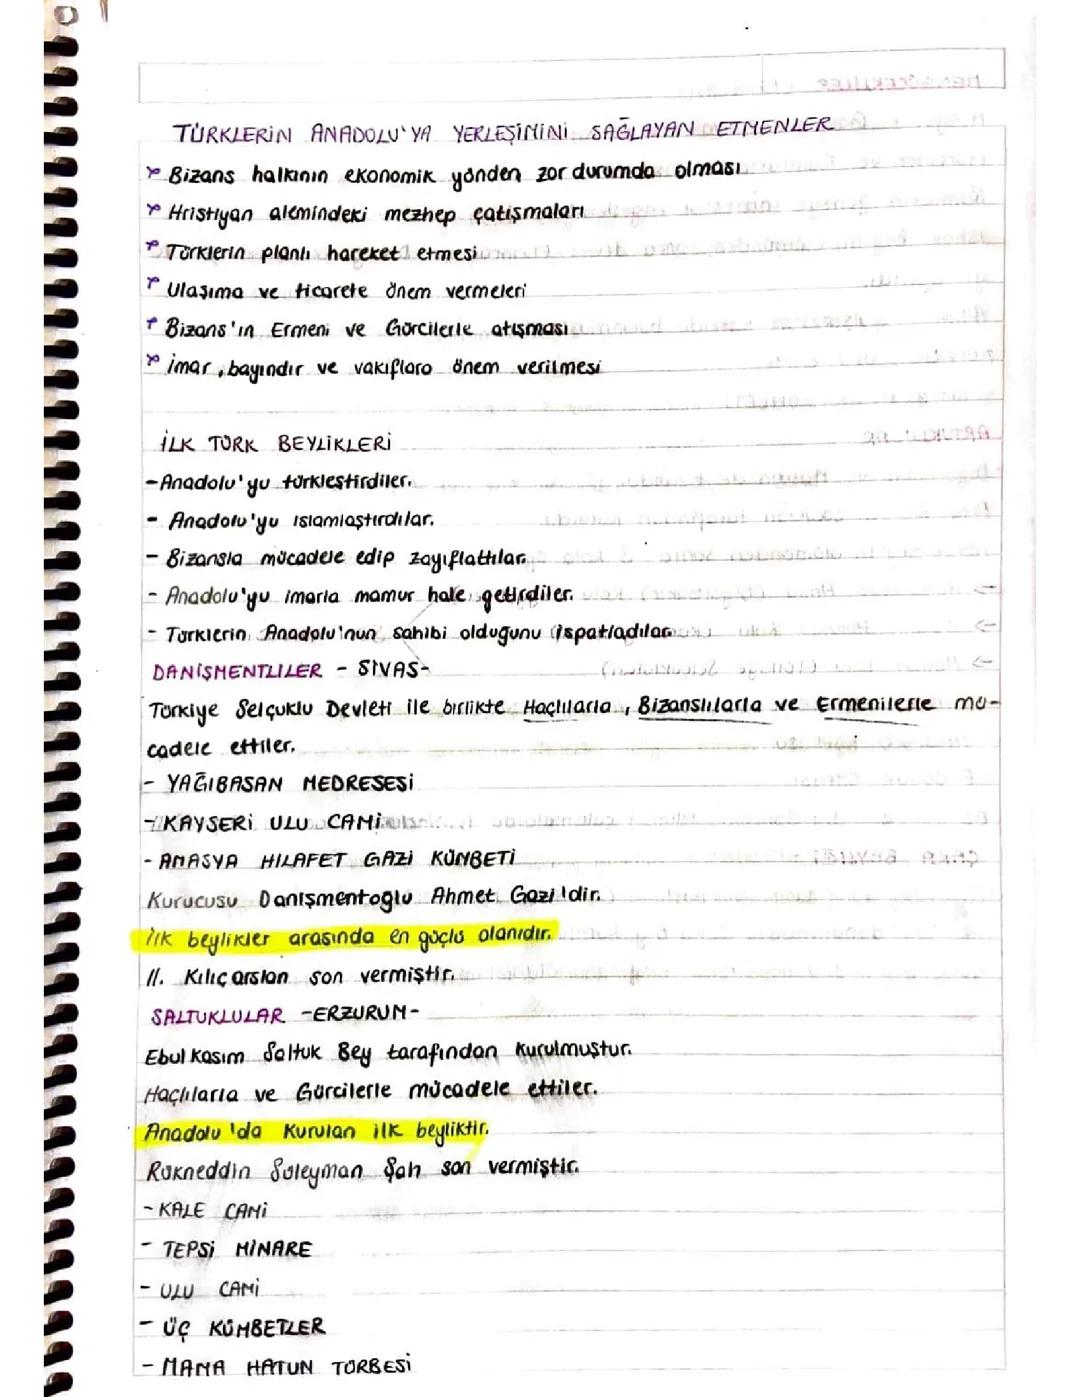 TÜRKLERİN ANADOLU'YA YERLEŞİMİNİ SAĞLAYAN ETMENLER
Bizans halkının ekonomik yönden zor durumda olması
Hristiyan alemindeki mezhep çatışmaları
Türklerin planlı hareket etmesi
Ulaşıma ve ticarete önem vermeleri
Bizans'ın Ermeni ve Gürcilerle atışması
İmar, bayındır ve vakıflara önem verilmesi
İLK TÜRK BEYLİKLERİ
- Anadolu'yu türkleştirdiler.
- Anadolu'yu ıslamlaştırdılar.
- Bizansla mücadele edip zayıflattılar.
- Anadolu'yu imarla mamur hale getirdiler.
- Türklerin Anadolu'nun sahibi olduğunu ispatladılar.
DANİŞMENTLİLER - SİVAS-
Türkiye Selçuklu Devleti ile birlikte Haçlılarla, Bizanslılarla ve Ermenilerle mü-
cadele ettiler.
- YAĞIBASAN MEDRESESİ
- KAYSERİ ULU CAMİ
- AMASYA HILAFET GAZİ KÜMBETİ
Kurucusu Danışmentoğlu Ahmet Gazi'dir.
İlk beylikler arasında en güçlü olanıdır.
II. Kılıçarslan son vermiştir.
SALTUKLULAR -ERZURUM-
Ebul Kasım Saltuk Bey tarafından kurulmuştur.
Haçlılarla ve Gürcilerle mücadele ettiler.
Anadolu'da Kurulan ilk beyliktir.
Rükneddin Süleyman Şah son vermiştir.
- KALE CAMİ
- TEPSİ MİNARE
- ULU CAMİ
- ÜÇ KÜMBETLER
- MAMA HATUN TÜRBESİ